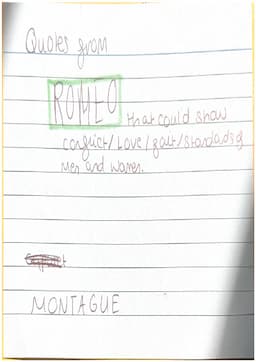 Quotes from
ROMEO
that could show
conflict/Love/fault/standards of
Men and women.
MONTAGUE